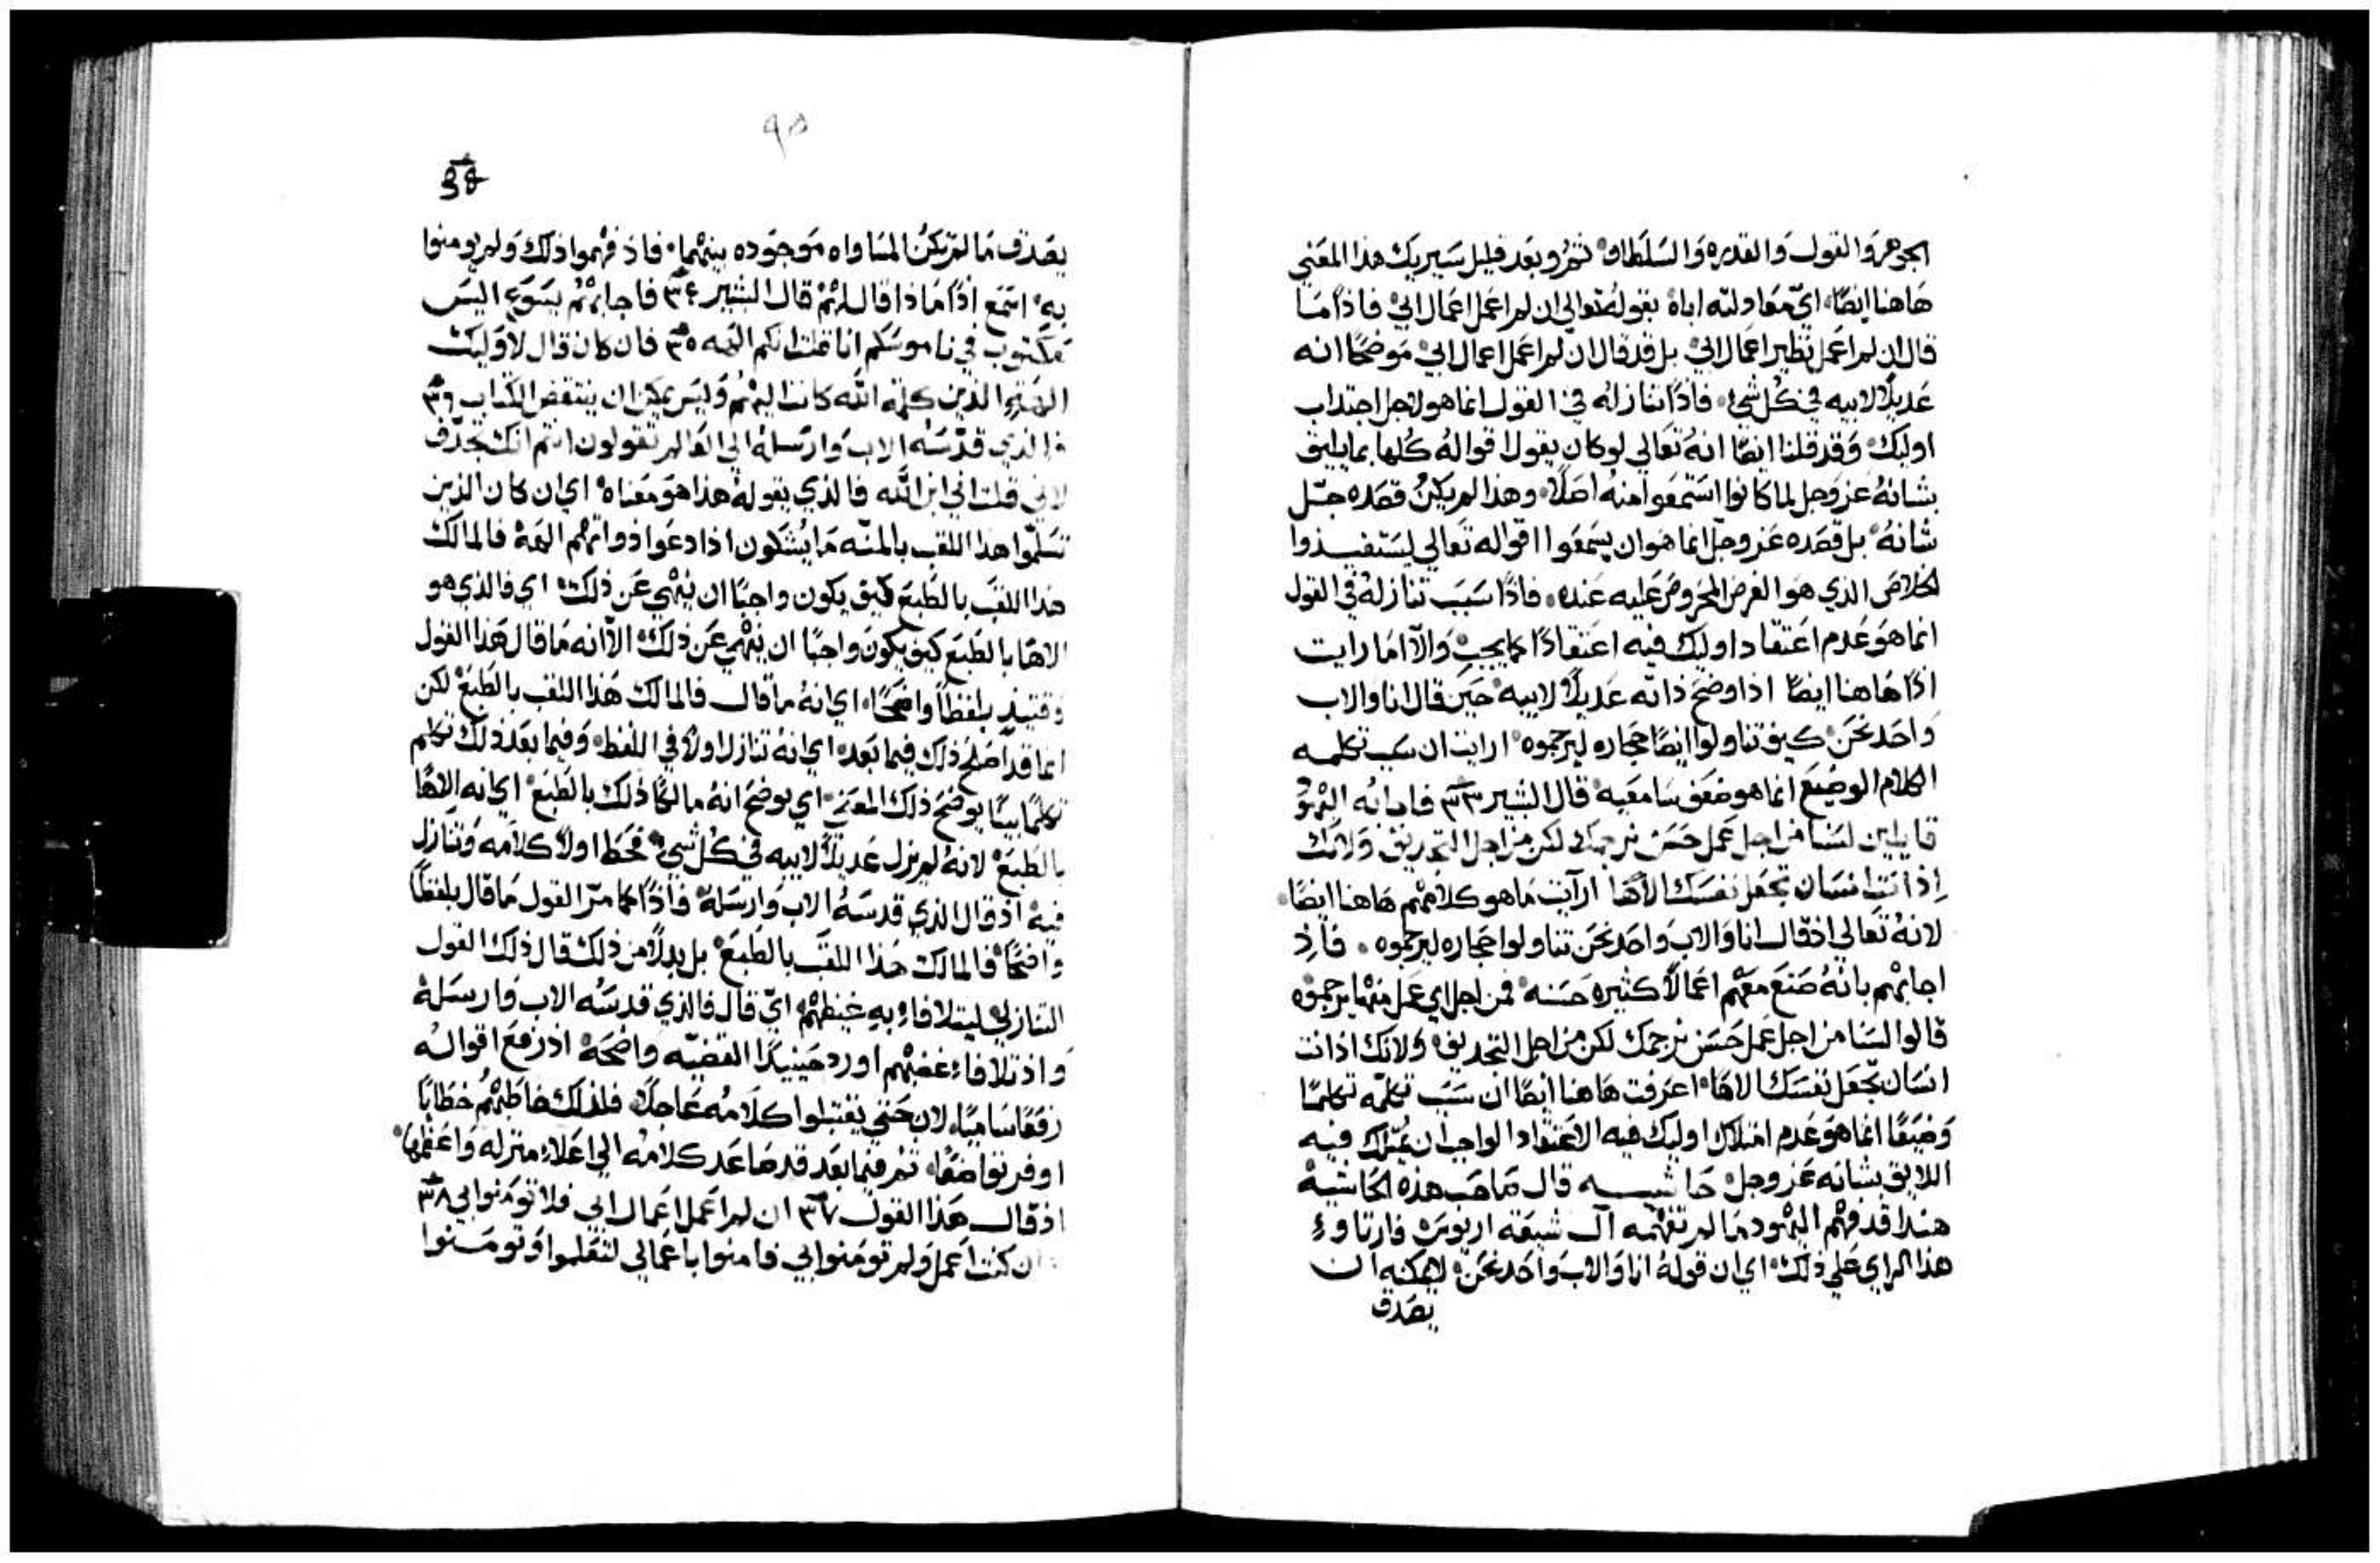 الجوهر والقول والقدره والسلطان ثم وبعد قليل سيريك هذا المعني
هاهنا ايضًا اي معادلته اباه بقوله تعالي ان لم اعمل اعمال ابي فاذًا ما
قال ان لم اعمل نظير اعمال ابي بل قد قال ان لم اعمل اعمال ابي موضحًا انه
عديلًا لابيه في كل شيء فاذًا تنازله في القول انما هو لاجل اجتداب
اوليك وقد قلنا ايضًا انه تعالي لو كان يقول اقواله كلها بما يليق
بشانه عز وجل لما كانوا استمعوا منه اصلًا وهذا لم يكن قصده جل
شانه بل قصده عز وجل انما هو ان يسمعوا اقواله تعالي ليستفيدوا
الخلاص الذي هو الغرض المحروص عليه عنده فاذًا سبب تنازله في القول
انما هو عدم اعتقاد اوليك فيه اعتقادًا كما يجب والا اما رايت
اذًا هاهنا ايضًا اذ اوضح ذاته عديلًا لابيه حين قال انا والاب
واحد نحن كيف تناولوا ايضًا حجاره ليرجموه ارايت ان سبب تكلمه
الكلام الوضيع انما هو ضعف سامعيه قال البشير ٣٣ فاجابه اليهود
قايلين لسنا من اجل عمل حسن نرجمك لكن من اجل التجديف ولانك
اذ انت انسان تجعل نفسك الاها ارايت ما هو كلامهم هاهنا ايضًا
لانه تعالي اذ قال انا والاب واحد نحن تناولوا حجاره ليرجموه فاذ
اجابهم بانه صنع معهم اعمالًا كثيره حسنه فمن اجل اي عمل منها يرجموه
قالوا لسنا من اجل عمل حسن نرجمك لكن من اجل التجديف ولانك اذ انت
انسان تجعل نفسك الاها اعرفت هاهنا ايضًا ان سبب تكلمه تكلمًا
وضيعًا انما هو عدم امتلاك اوليك فيه الاعتقاد الواجب ان يمتلك فيه
اللايق بشانه عز وجل حاشيه قال صاحب هذه الحاشية
هنا قد فهم اليهود ما لم تفهمه آل شيعة اريوس فارتاوء
هذا الراي علي ذلك اي ان قوله انا والاب واحد نحن لا يمكنه ان
يصدق
٩٥
يصدق ما لم تكن المساواه موجوده بينهما فاذ فهموا ذلك ولم يومنوا
به اسمع اذًا ماذا قال لهم قال البشير ٣٤ فاجابهم يسوع اليس
مكتوب في ناموسكم انا قلت انكم الهه ٣٥ فان كان قال لاوليك
الهة الذين كلمة الله كانت اليهم وليس يمكن ان ينتقض الكتاب ٣٦
فالذي قدسه الاب وارسله الي العالم تقولون انتم انك تجدف
لاني قلت اني ابن الله فالذي يقوله هذا هو معناه اي ان كان الذين
تسلموا هذا اللقب بالمنه ما يشكون اذا دعوا ذواتهم الهة فالمالك
هذا اللقب بالطبع كيف يكون واجبًا ان ينهي عن ذلك اي فالذي هو
الاها بالطبع كيف يكون واجبًا ان ينهي عن ذلك الا انه ما قال هذا القول
وقتيذ بلفظًا واضحًا اي انه ما قال فالمالك هذا اللقب بالطبع لكن
انما قد اصلح ذلك فيما بعد اي انه تنازل اولًا في اللفظ وفيما بعد ذلك تكلم
تكلمًا بينًا يوضح ذلك المعني اي يوضح انه مالكًا ذلك بالطبع اي انه الاهًا
بالطبع لانه لم يزل عديلًا لابيه في كل شيء فحط اولًا كلامه وتنازل
فيه اذ قال الذي قدسه الاب وارسله فاذًا كما مرّ القول ما قال بلفظًا
واضحًا فالمالك هذا اللقب بالطبع بل بدلًا من ذلك قال ذلك القول
التنازلي ليتلافاء به غيظهم اي قال فالذي قدسه الاب وارسله
واذ تلافاء غضبهم اورد حينيذًا القضيه واضحة اذ رفع اقواله
رفعًا ساميًا لان حتي يقتبلوا كلامه عاجلًا فلذلك خاطبهم خطابًا
اوفر تواضعًا ثم فيما بعد قد صاعد كلامه الي اعلاء منزله واعظمها
اذ قال هذا القول ٣٧ ان لم اعمل اعمال ابي فلا تومنوا بي ٣٨
وان كنت اعمل ولم تومنوا بي فامنوا باعمالي لتعلموا وتومنوا